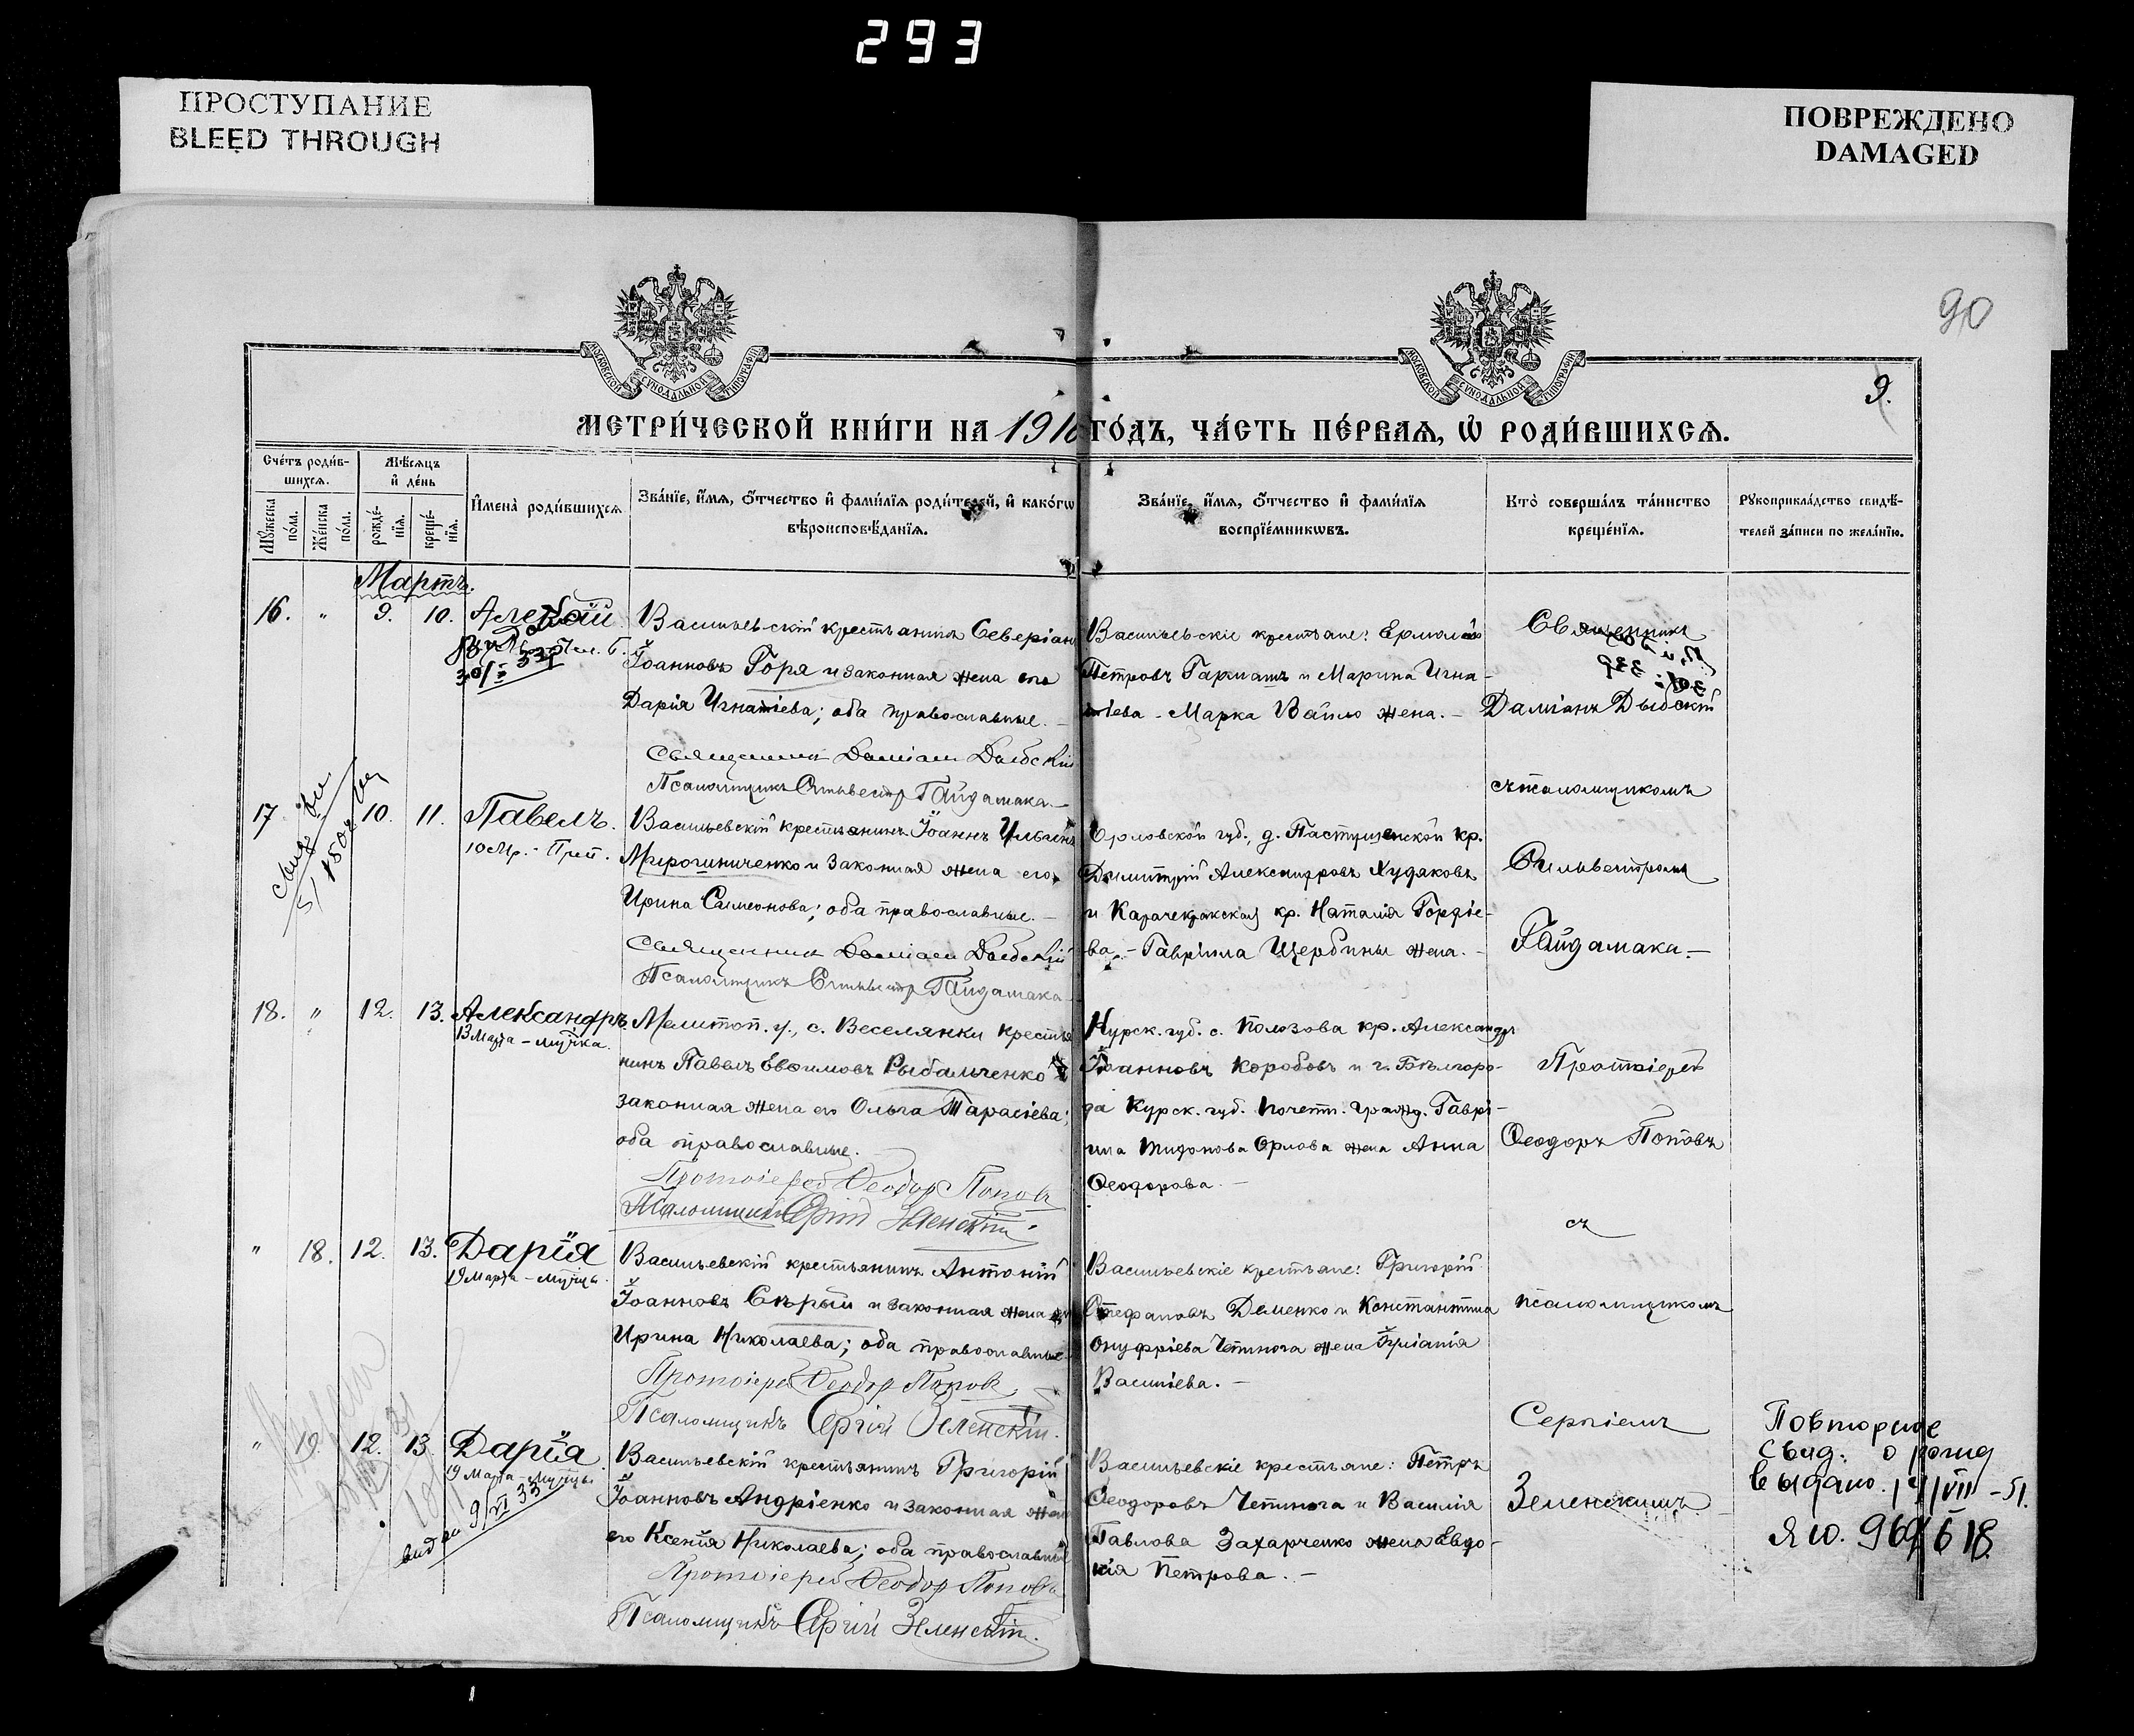 293
ПРОСТУПАНИЕ
BLEED THROUGH
ПОВРЕЖДЕНО
DAMAGED
90
9.
МОСКОВСКОЙ СУНОДАЛЬНОЙ ТИПОГРАФІИ
МОСКОВСКОЙ СУНОДАЛЬНОЙ ТИПОГРАФІИ
МЕТРИ́ЧЕСКОЙ КНИ́ГИ НА 1910 ГО́ДЪ, ЧА́СТЬ ПЕ́РВАЯ, Ѡ РОДИ́ВШИХСЯ.
Сче́тъ роди́в-
шихся.
Мѣсяцъ
и де́нь
Му́жеска по́ла.
Же́нска по́ла.
рожде́нія.
креще́нія.
Имена̀ роди́вшихся
Зва́ніе, и́мя, о́тчество и фами́лія роди́телей, и како́гѡ
вѣроисповѣ́данія.
Зва́ніе, и́мя, о́тчество и фами́лія
воспріе́мникѡвъ.
Кто̀ соверша́лъ та́инство
креще́нія.
Рукоприкла́дство свидѣ́-
телей за́писи по жела́нію.
Мартъ.
16. " 9. 10. Алексій
Васильевскій крестьянинъ Северіанъ
Іоанновъ Горя и законная жена его
Дарія Игнатіева; оба православные. —
Священникъ Даміанъ Дыбскій
Псаломщикъ Сильвестръ Гайдамака. —
Васильевскіе крестьане: Ермолай
Петровъ Гаркашъ и Марина Игна-
тіева - Марка Вайло жена. —
Священникъ
Даміанъ Дыбскій
съ псаломщикомъ
17 10. 11. Павелъ.
10 Мр. - Преп.
Васильевскій крестьянинъ Іоаннъ
Мирошниченко и законная жена его
Ирина Симеонова; оба православные. —
Священникъ Даміанъ Дыбскій
Псаломщикъ Сильвестръ Гайдамака
Орловской губ., д. кр.
Димитрій Александровъ Худяковъ
и Карачекракская кр. Наталія Гордіе-
ва. - Гавріила Щербины жена. —
Сильвестромъ
Гайдамака. —
18. " 12. 13. Александръ.
13 Марта - мучка.
Мелитоп. у., с. Веселянки крестья-
нинъ Павелъ Евѳимовъ Рыбальченко и
законная жена его Ольга Тарасіева;
оба православные.
Протоіерей Ѳеодоръ Поповъ
Псаломщикъ Сергій Зеленскій.
Курск. губ. с. Полозова кр. Александръ
Іоанновъ Коробовъ и г. Бѣлгоро-
да Курск. губ. почетн. гражд. Гаврі-
ила Орлова жена Анна
Ѳеодорова. —
Протоіерей
Ѳеодоръ Поповъ
съ
" 18. 12. 13. Дарія
19 Марта - муцы.
Васильевскій крестьянинъ Антоній
Іоанновъ Сѣрый и законная жена его
Ирина Николаева; оба православные.
Протоіерей Ѳеодоръ Поповъ
Псаломщикъ Сергій Зеленскій.
Васильевскіе крестьане: Григорій
Стефановъ Деменко и Константина
Онуфріева жена Іуліанія
Васильева. —
псаломщикомъ
Сергіемъ
" 19. 12. 13 Дарія.
19 Марта - муцы.
видано 9/VI 33
Васильевскій крестьянинъ Григорій
Іоанновъ Андріенко и законная жена
его Ксенія Николаева; оба православные
Протоіерей Ѳеодоръ Поповъ
Псаломщикъ Сергій Зеленскій.
Васильевскіе крестьане: Петръ
Ѳеодоровъ и Василія
Павлова Захарченко жена Евдо-
кія Петрова. —
Зеленскимъ
Повторное
свид. о рожд
выдано. 14/VII - 51.
ЯЮ. 969618